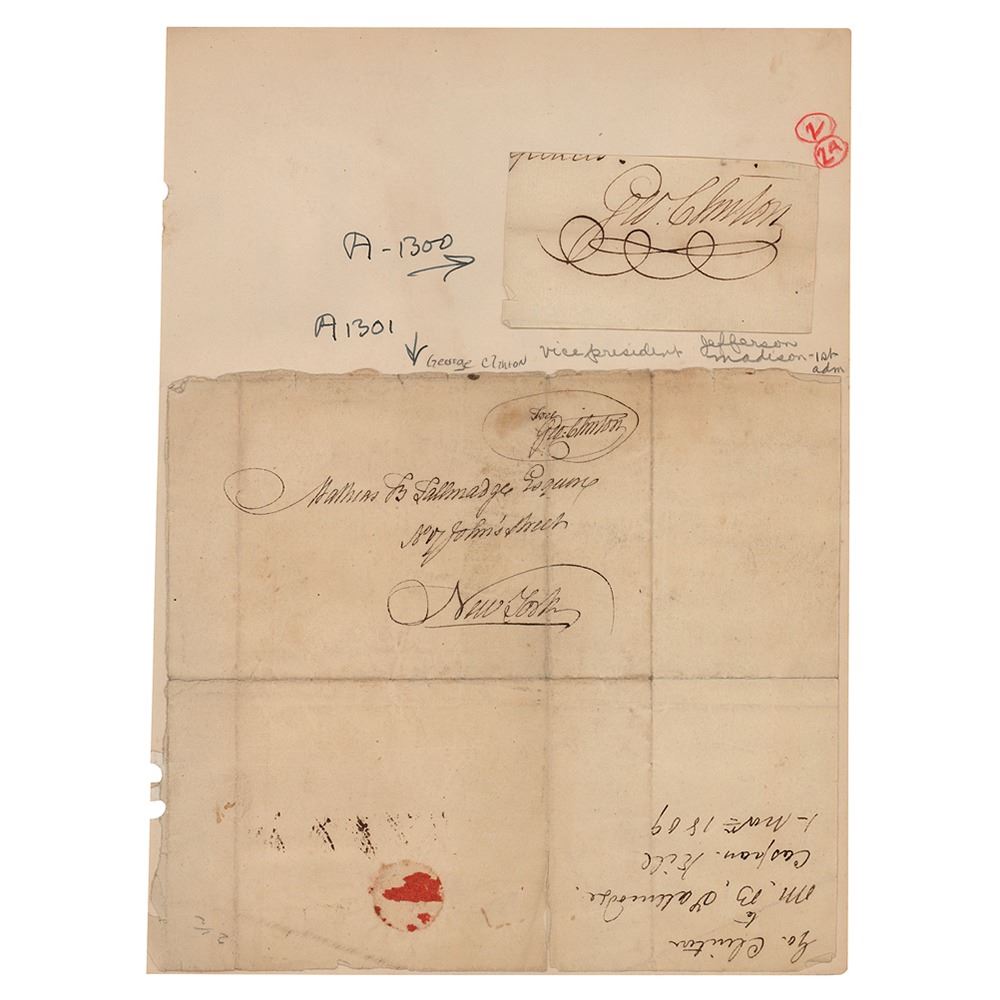 2
2a
Geo. Clinton
A-1300
A1301
George Clinton
vice president Jefferson
Madison-1st
adm
free
Geo. Clinton
Mathias B Tallmadge Esquire
No 7 John's street
New York
Go. Clinton
to
M, B, Talmadge.
Caspan. Kill
1809